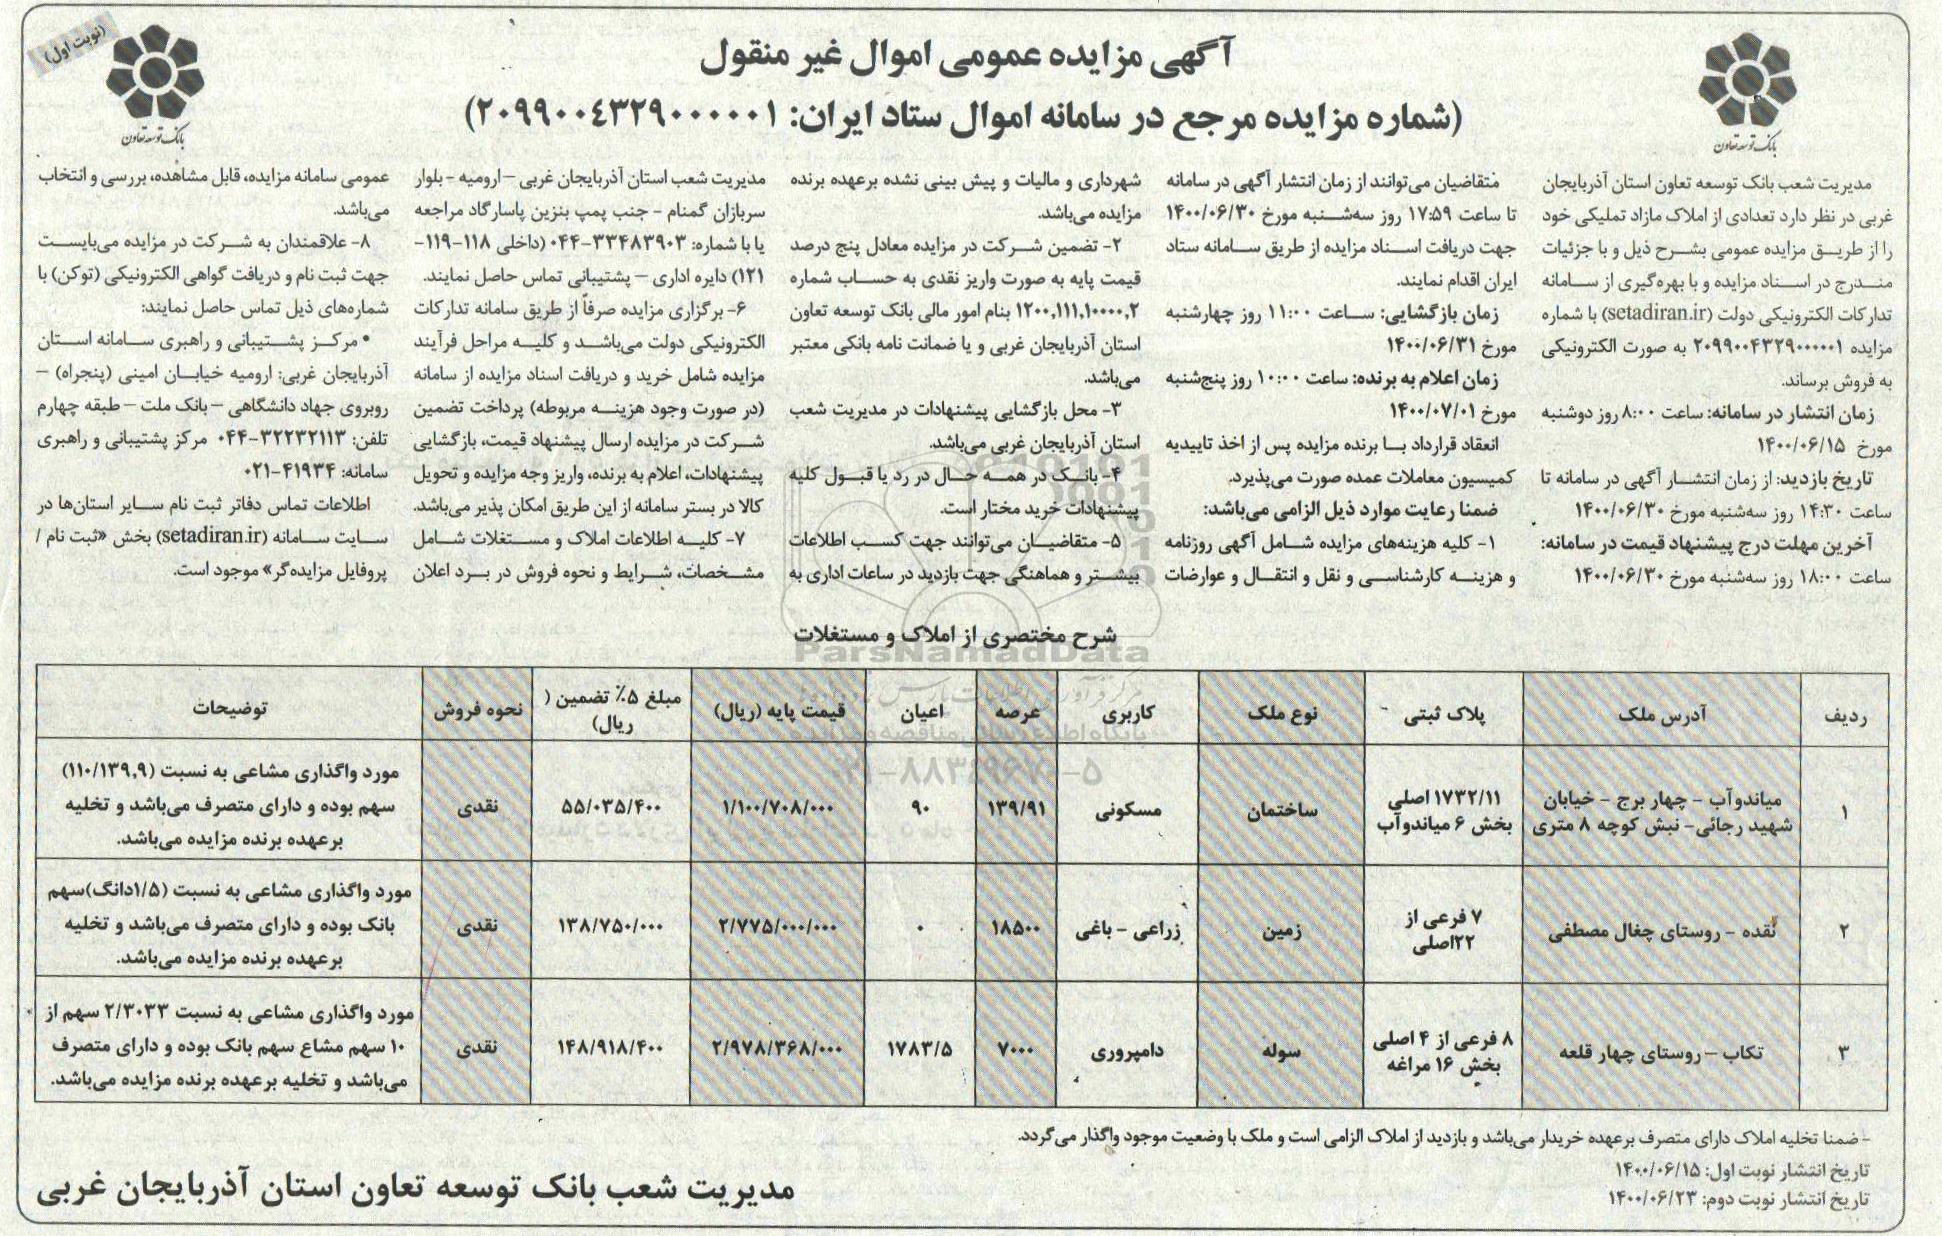 (نوبت اول)
بانک توسعه تعاون
بانک توسعه تعاون
آگهی مزایده عمومی اموال غیر منقول
(شماره مزایده مرجع در سامانه اموال ستاد ایران: ۲۰۹۹۰۰۴۳۲۹۰۰۰۰۰۱)
مدیریت شعب بانک توسعه تعاون استان آذربایجان
غربی در نظر دارد تعدادی از املاک مازاد تملیکی خود
را از طریق مزایده عمومی بشرح ذیل و با جزئیات
مندرج در اسناد مزایده و با بهره‌گیری از سامانه
تدارکات الکترونیکی دولت (setadiran.ir) با شماره
مزایده ۲۰۹۹۰۰۴۳۲۹۰۰۰۰۰۱ به صورت الکترونیکی
به فروش برساند.
زمان انتشار در سامانه: ساعت ۸:۰۰ روز دوشنبه
مورخ ۱۴۰۰/۰۶/۱۵
تاریخ بازدید: از زمان انتشار آگهی در سامانه تا
ساعت ۱۴:۳۰ روز سه‌شنبه مورخ ۱۴۰۰/۰۶/۳۰
آخرین مهلت درج پیشنهاد قیمت در سامانه:
ساعت ۱۸:۰۰ روز سه‌شنبه مورخ ۱۴۰۰/۰۶/۳۰
متقاضیان می‌توانند از زمان انتشار آگهی در سامانه
تا ساعت ۱۷:۵۹ روز سه‌شنبه مورخ ۱۴۰۰/۰۶/۳۰
جهت دریافت اسناد مزایده از طریق سامانه ستاد
ایران اقدام نمایند.
زمان بازگشایی: ساعت ۱۱:۰۰ روز چهارشنبه
مورخ ۱۴۰۰/۰۶/۳۱
زمان اعلام به برنده: ساعت ۱۰:۰۰ روز پنج‌شنبه
مورخ ۱۴۰۰/۰۷/۰۱
انعقاد قرارداد با برنده مزایده پس از اخذ تاییدیه
کمیسیون معاملات عمده صورت می‌پذیرد.
ضمنا رعایت موارد ذیل الزامی می‌باشد:
۱- کلیه هزینه‌های مزایده شامل آگهی روزنامه
و هزینه کارشناسی و نقل و انتقال و عوارضات
شهرداری و مالیات و پیش بینی نشده برعهده برنده
مزایده می‌باشد.
۲- تضمین شرکت در مزایده معادل پنج درصد
قیمت پایه به صورت واریز نقدی به حساب شماره
۱۲۰۰,۱۱۱,۱۰۰۰۰,۲ بنام امور مالی بانک توسعه تعاون
استان آذربایجان غربی و یا ضمانت نامه بانکی معتبر
می‌باشد.
۳- محل بازگشایی پیشنهادات در مدیریت شعب
استان آذربایجان غربی می‌باشد.
۴- بانک در همه حال در رد یا قبول کلیه
پیشنهادات خرید مختار است.
۵- متقاضیان می‌توانند جهت کسب اطلاعات
بیشتر و هماهنگی جهت بازدید در ساعات اداری به
مدیریت شعب استان آذربایجان غربی – ارومیه - بلوار
سربازان گمنام - جنب پمپ بنزین پاسارگاد مراجعه
یا با شماره: ۳۳۴۸۳۹۰۳-۰۴۴ (داخلی ۱۱۸-۱۱۹-
۱۲۱) دایره اداری – پشتیبانی تماس حاصل نمایند.
۶- برگزاری مزایده صرفاً از طریق سامانه تدارکات
الکترونیکی دولت می‌باشد و کلیه مراحل فرآیند
مزایده شامل خرید و دریافت اسناد مزایده از سامانه
(در صورت وجود هزینه مربوطه) پرداخت تضمین
شرکت در مزایده ارسال پیشنهاد قیمت، بازگشایی
پیشنهادات، اعلام به برنده، واریز وجه مزایده و تحویل
کالا در بستر سامانه از این طریق امکان پذیر می‌باشد.
۷- کلیه اطلاعات املاک و مستغلات شامل
مشخصات، شرایط و نحوه فروش در برد اعلان
عمومی سامانه مزایده، قابل مشاهده، بررسی و انتخاب
می‌باشد.
۸- علاقمندان به شرکت در مزایده می‌بایست
جهت ثبت نام و دریافت گواهی الکترونیکی (توکن) با
شماره‌های ذیل تماس حاصل نمایند:
• مرکز پشتیبانی و راهبری سامانه استان
آذربایجان غربی: ارومیه خیابان امینی (پنجراه) –
روبروی جهاد دانشگاهی – بانک ملت – طبقه چهارم
تلفن: ۳۲۲۳۲۱۱۳-۰۴۴ مرکز پشتیبانی و راهبری
سامانه: ۴۱۹۳۴-۰۲۱
اطلاعات تماس دفاتر ثبت نام سایر استان‌ها در
سایت سامانه (setadiran.ir) بخش «ثبت نام /
پروفایل مزایده‌گر» موجود است.
شرح مختصری از املاک و مستغلات
ParsNamadData
۰۲۱-۸۸۳۴۹۶۷۰-۵
ردیف | آدرس ملک | پلاک ثبتی | نوع ملک | کاربری | عرصه | اعیان | قیمت پایه (ریال) | مبلغ ۵٪ تضمین (ریال) | نحوه فروش | توضیحات
۱ | میاندوآب - چهار برج - خیابان شهید رجائی- نبش کوچه ۸ متری | ۱۷۳۲/۱۱ اصلی بخش ۶ میاندوآب | ساختمان | مسکونی | ۱۳۹/۹۱ | ۹۰ | ۱/۱۰۰/۷۰۸/۰۰۰ | ۵۵/۰۳۵/۴۰۰ | نقدی | مورد واگذاری مشاعی به نسبت (۱۱۰/۱۳۹,۹) سهم بوده و دارای متصرف می‌باشد و تخلیه برعهده برنده مزایده می‌باشد.
۲ | نقده - روستای چغال مصطفی | ۷ فرعی از ۲۲اصلی | زمین | زراعی - باغی | ۱۸۵۰۰ | ۰ | ۲/۷۷۵/۰۰۰/۰۰۰ | ۱۳۸/۷۵۰/۰۰۰ | نقدی | مورد واگذاری مشاعی به نسبت (۱/۵دانگ)سهم بانک بوده و دارای متصرف می‌باشد و تخلیه برعهده برنده مزایده می‌باشد.
۳ | تکاب – روستای چهار قلعه | ۸ فرعی از ۴ اصلی بخش ۱۶ مراغه | سوله | دامپروری | ۷۰۰۰ | ۱۷۸۳/۵ | ۲/۹۷۸/۳۶۸/۰۰۰ | ۱۴۸/۹۱۸/۴۰۰ | نقدی | مورد واگذاری مشاعی به نسبت ۲/۳۰۳۳ سهم از ۱۰ سهم مشاع سهم بانک بوده و دارای متصرف می‌باشد و تخلیه برعهده برنده مزایده می‌باشد.
- ضمنا تخلیه املاک دارای متصرف برعهده خریدار می‌باشد و بازدید از املاک الزامی است و ملک با وضعیت موجود واگذار می‌گردد.
تاریخ انتشار نوبت اول: ۱۴۰۰/۰۶/۱۵
تاریخ انتشار نوبت دوم: ۱۴۰۰/۰۶/۲۳
مدیریت شعب بانک توسعه تعاون استان آذربایجان غربی